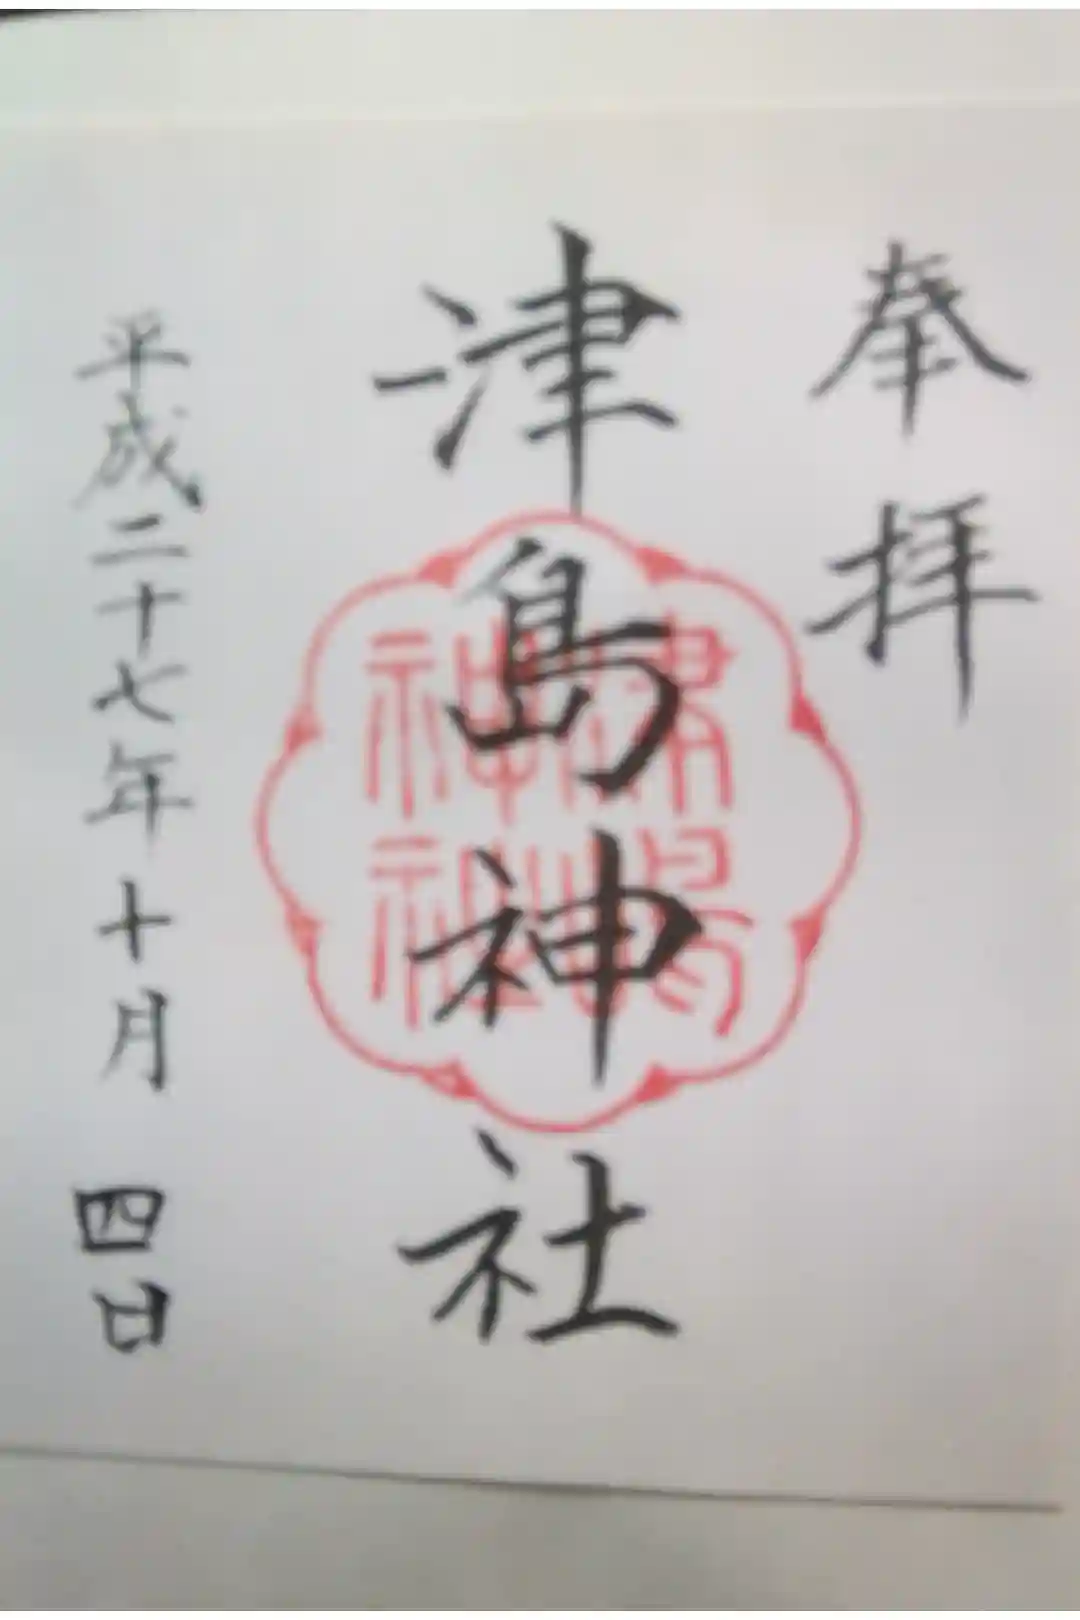 奉拝
津島神社
津島神社
平成二十七年十月四日